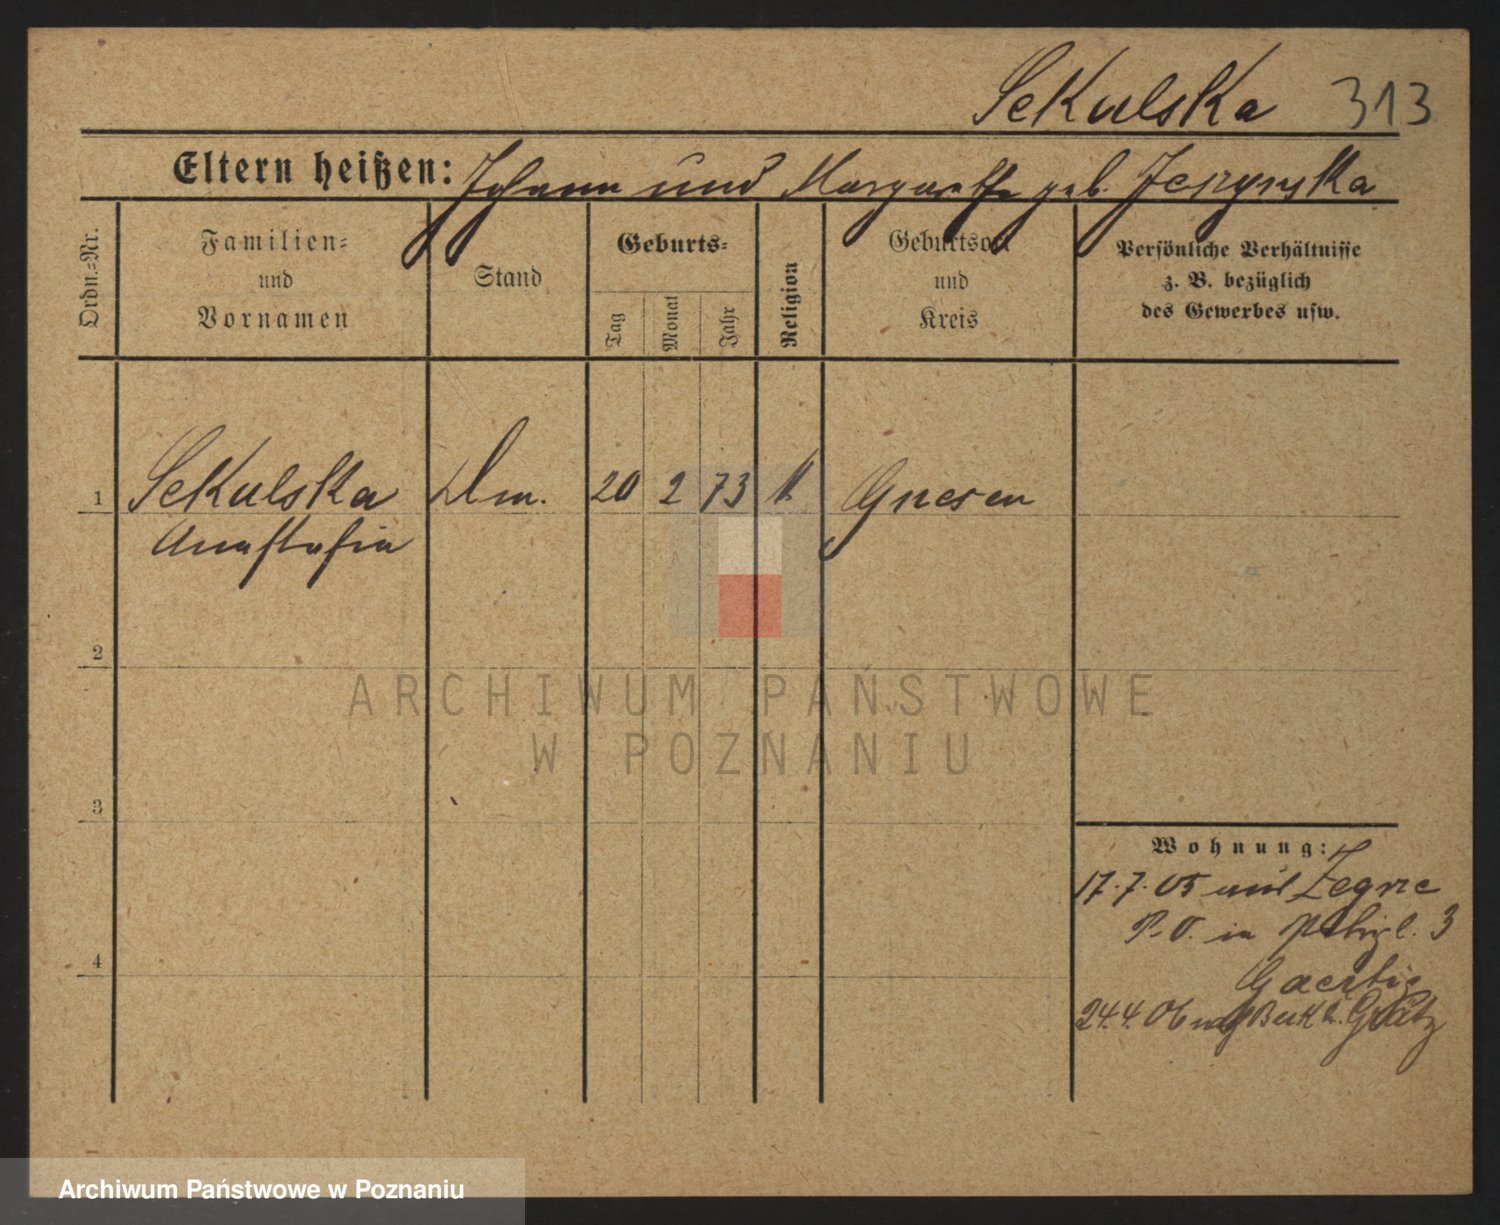 Sekulska 313
Eltern heißen: Johann und Margarethe geb.
Ordn.=Nr.
Familien=
und
Vornamen
Stand
Geburts=
Tag
Monat
Jahr
Religion
Geburtsort
und
Kreis
Persönliche Verhältnisse
z. B. bezüglich
des Gewerbes usw.
1 Sekulska Dm. 20 2 73 k Gnesen
Anastasia
2
3
4
Wohnung:
17.7.05 aus Zegrze
P. O. in 3
24.4.06 nach Grätz
ARCHIWUM PAŃSTWOWE
W POZNANIU
Archiwum Państwowe w Poznaniu